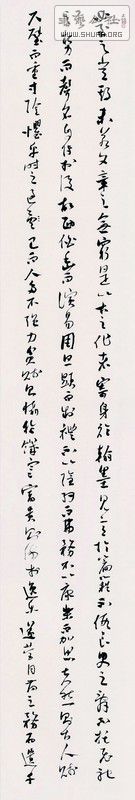 之常期未若文章之無窮是以古之作者寄身於翰墨見意於篇籍不假良史之辭不託飛馳
之勢而聲名自傳於後故西伯幽而演易周旦顯而制禮不以隱約而弗務不以康樂而加思夫然則古人賤
尺璧而重寸陰懼乎時之過已而人多不強力貧賤則懾於饑寒富貴則流於逸樂遂營目前之務而遺千